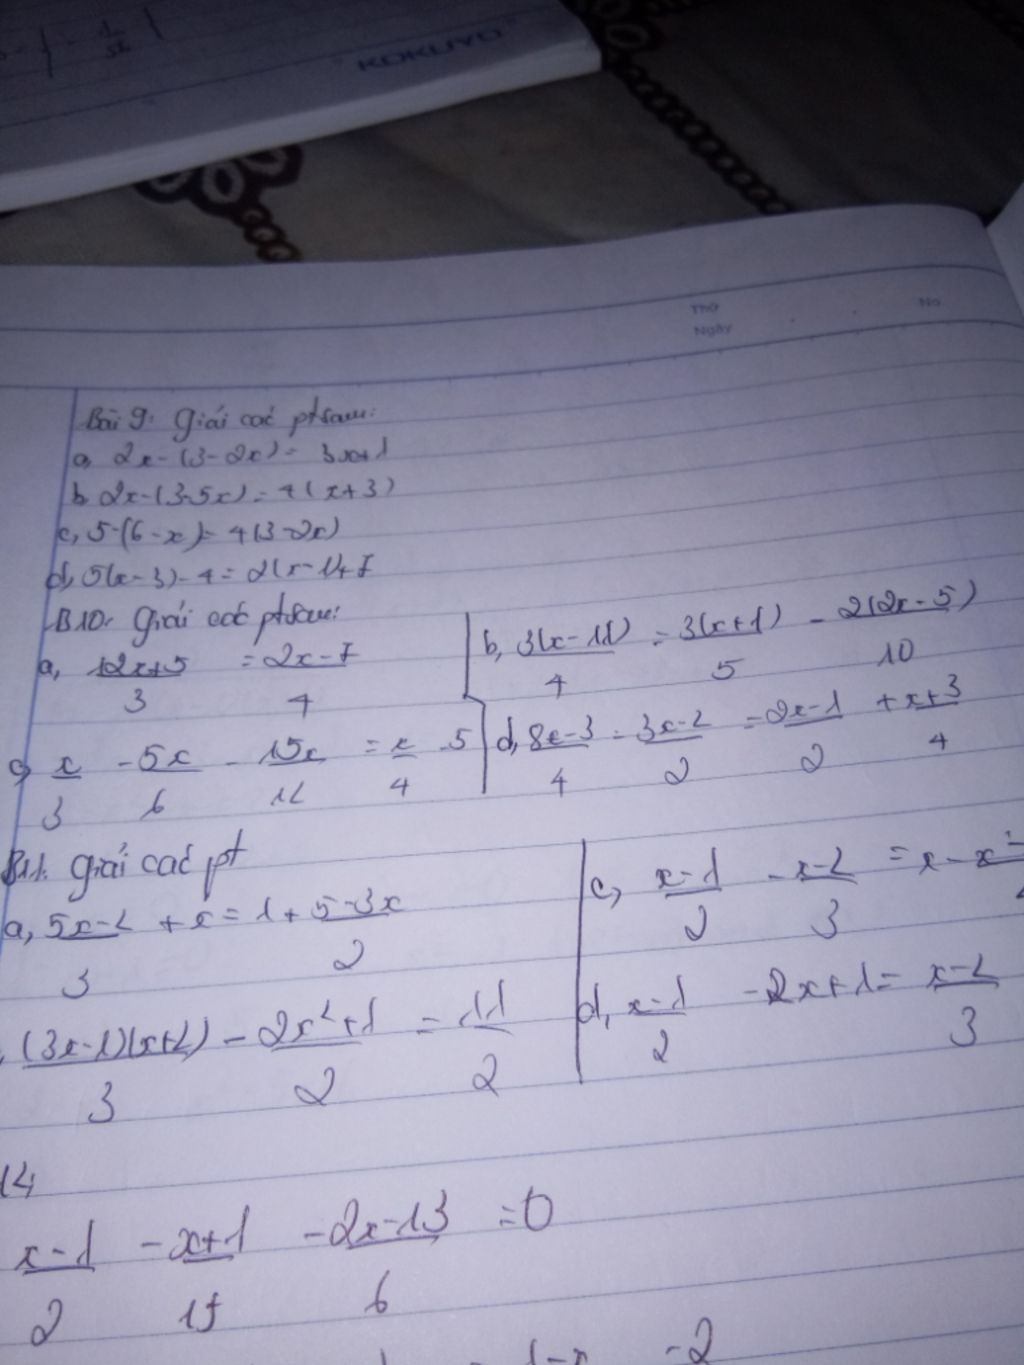 KOKUYO
Thứ
Ngày
No
Bài 9: Giải các pt sau:
a, 2x-(3-2x)= 3x+1
b, 2x-(3-5x)=4(x+3)
c, 5-(6-x)= 4(3-2x)
d, 5(x-3)-4= 2(x-1)+7
B10: Giải các pt sau:
a, 12x+5/3 = 2x-7/4
b, 3(x-11)/4 = 3(x+1)/5 - 2(2x-5)/10
c, x/3 - 5x/6 - 15x/12 = x/4 - 5
d, 8x-3/4 - 3x-2/2 = 2x-1/2 + x+3/4
B11: Giải các pt
a, 5x-2/3 + x = 1 + 5-3x/2
, (3x-1)(x+2)/3 - 2x²+1/2 = 11/2
c, x-1/2 - x-2/3 = x - x
d, x-1/2 - 2x+1 = x-2/3
x-1/2 - x+1/15 - 2x-13/6 = 0
-2